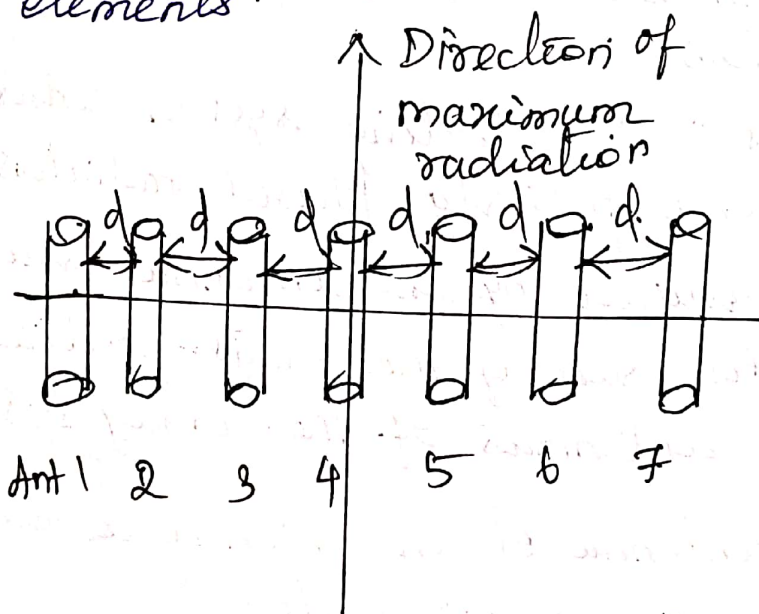 elements
Direction of
maximum
radiation
d d d d d d
Ant 1 2 3 4 5 6 7